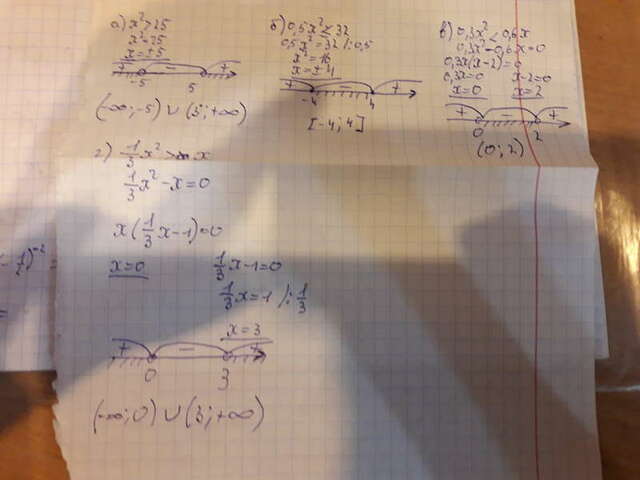 а) x² > 25
x² = 25
x = ±5
+ − +
-5 5
(-∞; -5) ∪ (3; +∞)
б) 0,5x² ≤ 32
0,5x² = 32 /: 0,5
x² = 16
x = ±4
+ − +
-4 4
[-4; 4]
в) 0,3x² < 0,6x
0,3x² - 0,6x = 0
0,3x(x-2) = 0
0,3x = 0 x-2 = 0
x = 0 x = 2
+ − +
0 2
(0; 2)
г) 1/3 x² > x
1/3 x² - x = 0
x(1/3 x - 1) = 0
x = 0 1/3 x - 1 = 0
1/3 x = 1 /: 1/3
x = 3
+ − +
0 3
(-∞; 0) ∪ (3; +∞)